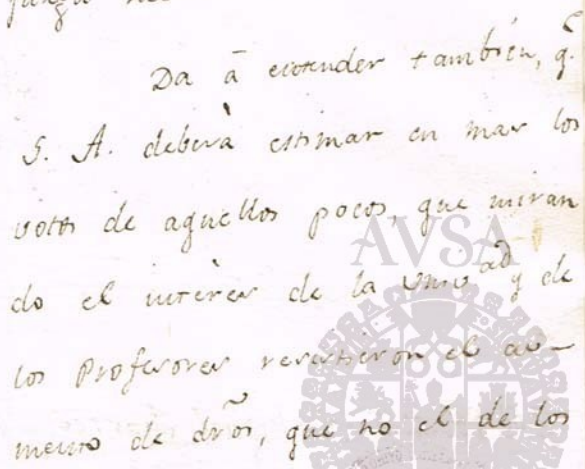 Da â entender tambien, q.e
S. A. deberà estimar en mas los
votos de aquellos pocos, que miran
do el interes de la Univ.ad y de
los Profesores resistieron el au-
mento de drõs, que no el de los
AVSA